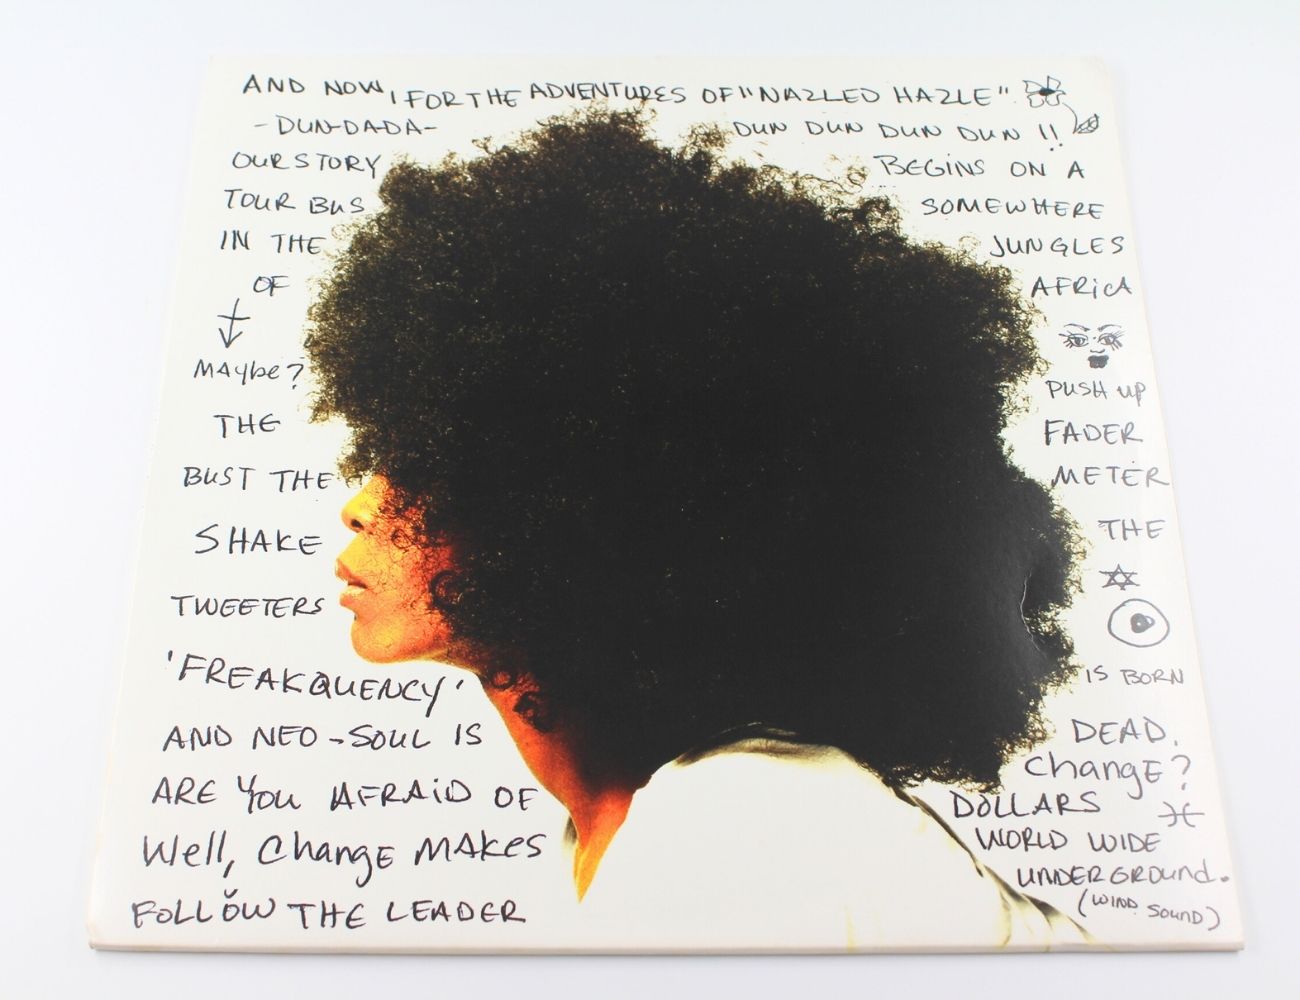 AND NOW, FOR THE ADVENTURES OF "NAZLED HAZLE"
-DUN-DADA- DUN DUN DUN DUN !!
OUR STORY BEGINS ON A
TOUR BUS SOMEWHERE
IN THE JUNGLES
OF AFRiCA
MAybe? PUSH up
THE FADER
BUST THE METER
SHAKE THE
TWEETERS
'FREAKQUENCY' IS BORN
AND NEO-SOUL IS DEAD.
ARE YOU AFRAiD OF Change?
Well, Change MAKes DOLLARS
FOLLOW THE LEADER WORLD WIDE
UNDERGROUND.
(WIND SOUND)